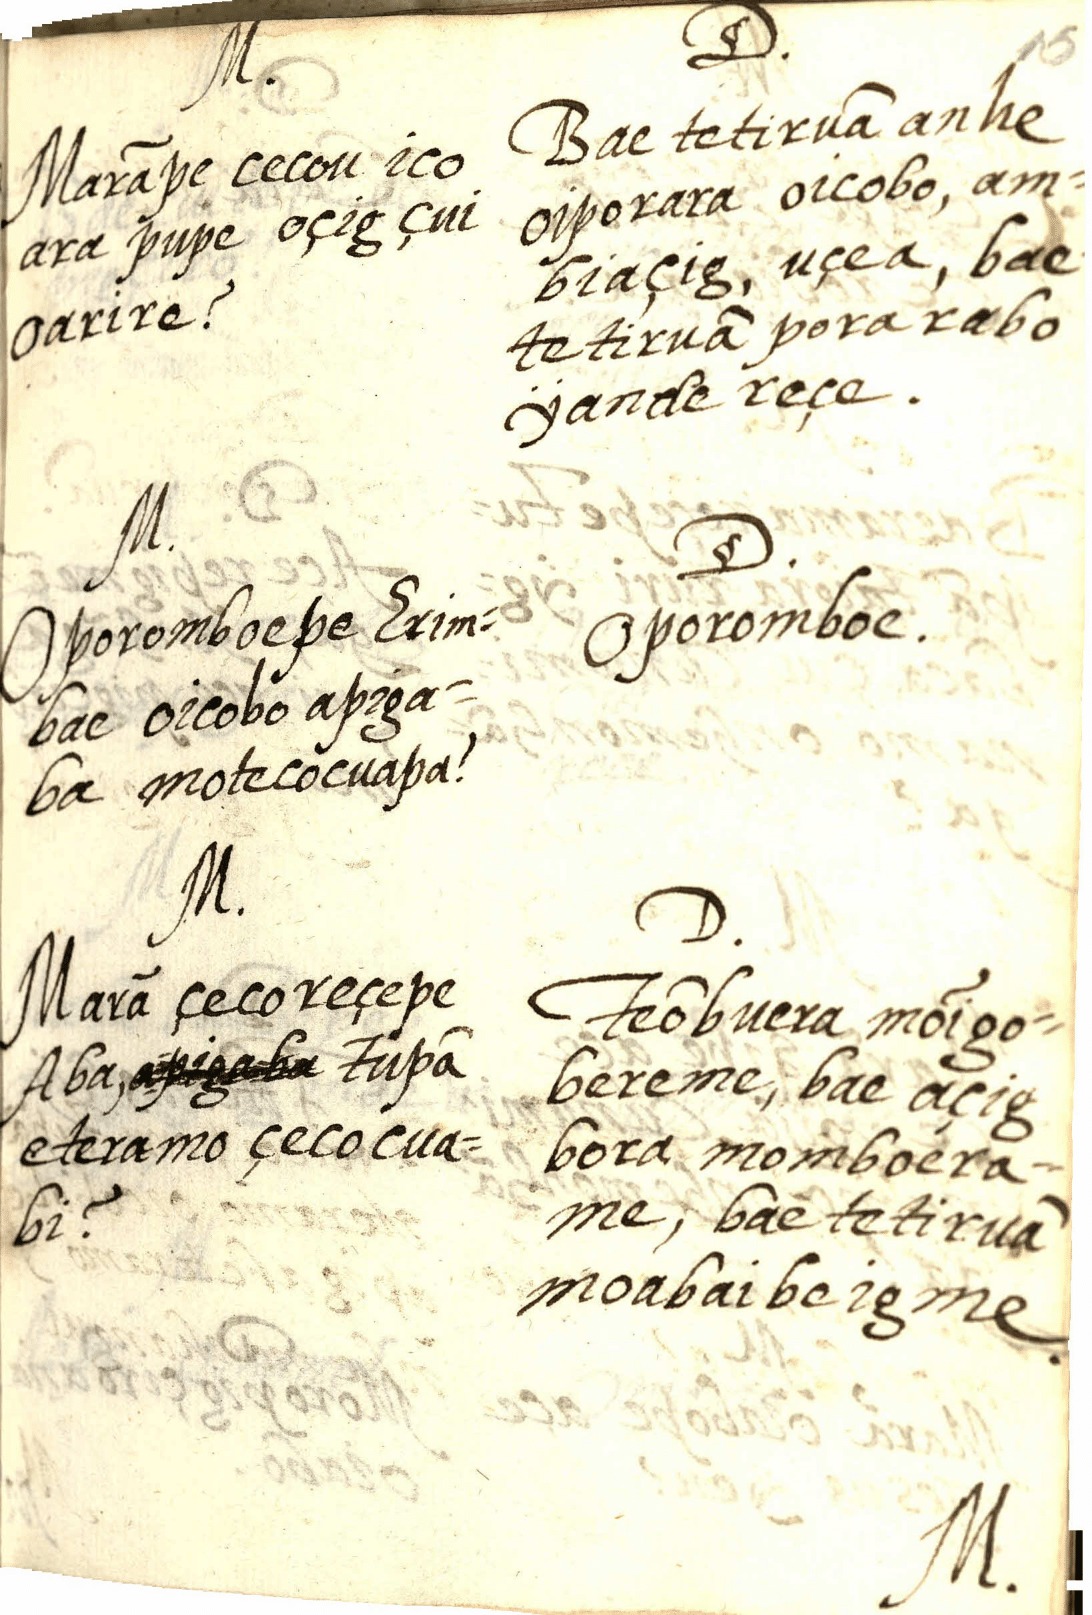 15
M.
Marãpe cecou ico
ara pupe oçig çui
oarire?
D.
Bae tetiruã anhe
oiporara oicobo, am-
biaçig, uçea, bae
tetiruã pora rabo
ÿande reçe.
M.
Oporomboepe Erim-
bae oicobo apiga-
ba motecocuapa?
D.
Oporomboe.
M.
Marã çecoreçepe
Aba, apigaba Tupã
eteramo çecocua-
bi?
D.
Teõbuera mõigo-
bereme, bae açig
bora momboera-
me, bae tetiruã
moabaibeigme.
M.